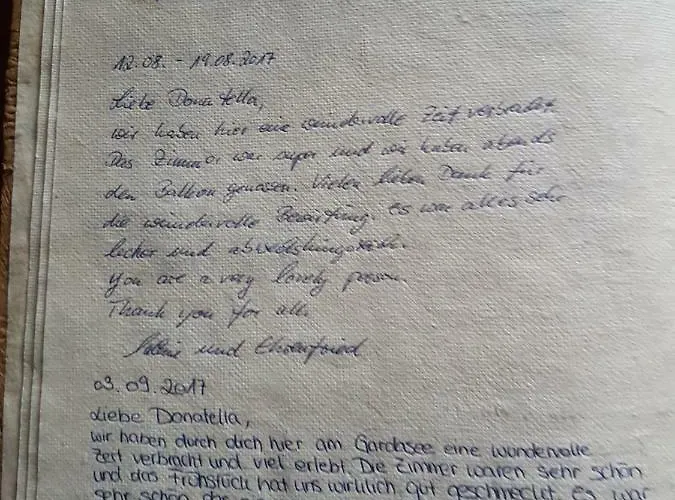 12.08. - 19.08.2017
Liebe Donatella,
wir haben hier eine wundervolle Zeit verbracht.
Das Zimmer war super und wir haben abends
den Balkon genossen. Vielen lieben Dank für
die wundervolle Bewirtung. Es war alles sehr
lecker und abwechslungsreich.
You are a very lovely person.
Thank you for all.
und Ehrenfried
03.09.2017
Liebe Donatella,
wir haben durch dich hier am Gardasee eine wundervolle
Zeit verbracht und viel erlebt. Die Zimmer waren sehr schön
und das Frühstück hat uns wirklich gut geschmeckt. Es war
sehr schön